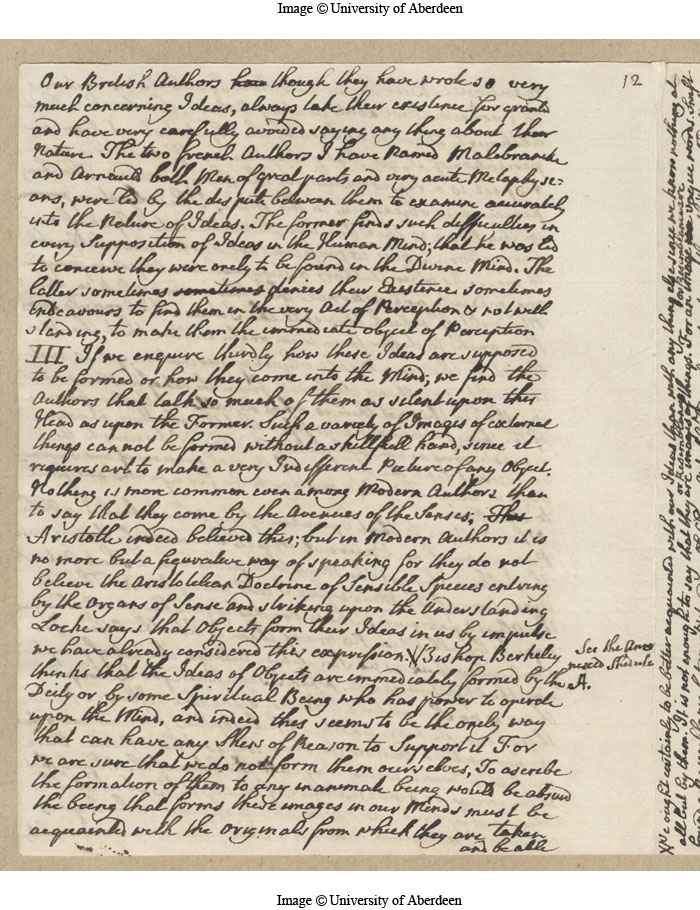 Image © University of Aberdeen
12
Our British Authors have though they have wrote so very
much concerning Ideas, always take their existence for granted
and have very carefully avoided saying any thing about their
Nature. The two french Authors I have Named Malebranche
and Arnauld both Men of great parts and very acute Metaphysi=
ans, were led by the dispute between them to examine accurately
into the Nature of Ideas. The former finds such difficulties in
every Supposition of Ideas in the Human Mind; that he was led
to conceive they were onely to be found in the Divine Mind. The
latter sometimes sometimes denies their Existence sometimes
endeavours to find them in the very Act of Perception & not with
standing, to make them the immediate object of Perception
III If we enquire thirdly how these Ideas are supposed
to be formed or how they come into the Mind; we find the
Authors that talk so much of them as silent upon this
Head as upon the Former. Such a variety of Images of external
things can not be formed without a skillfull hand, since it
requires art to make a very Indifferent Picture of any Object.
Nothing is more common even among Modern Authors than
to say that they come by the Avenues of the Senses; This
Aristotle indeed believed this; but in Modern Authors it is
no more but a figurative way of speaking for they do not
believe the Aristotelian Doctrine of Sensible Species entring
by the Organs of Sense and striking upon the Understanding
Locke says that Objects form their Ideas in us by impulse
we have already considered this expression. Bishop Berkeley
thinks that the Ideas of Objects are immediately formed by the
Deity or by some Spiritual Being who has power to operate
upon the Mind, and indeed this seems to be the onely way
that can have any Shew of Reason to Support it For
we are sure that we do not form them ourselves, To ascribe
the formation of them to any inanimate being would be absurd
the being that forms these images in our Minds must be
acquainted with the Originals from which they are taken
and be able
See the Annexed
A.
We ought certainly to be better acquainted with our Ideas than with any thing else since we know nothing at
all but by them. It is not enough to say that they are images of things. For an image
Image © University of Aberdeen